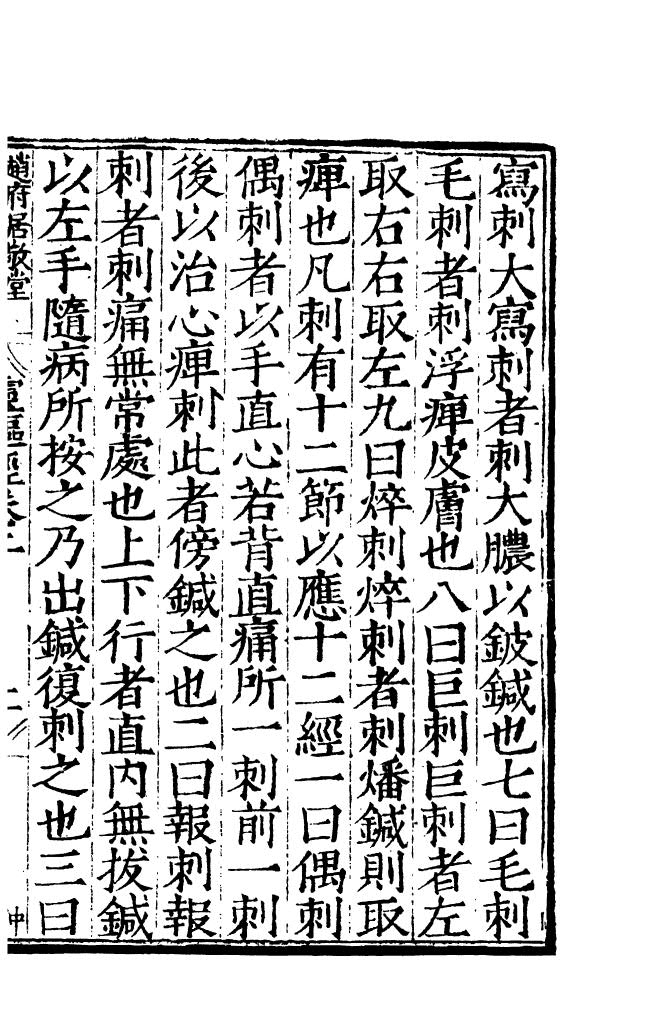 寫刺大寫刺者刺大膿以鈹鍼也七曰毛刺
毛刺者刺浮痺皮膚也八曰巨刺巨刺者左
取右右取左九曰焠刺焠刺者刺燔鍼則取
痺也凡刺有十二節以應十二經一曰偶刺
偶刺者以手直心若背直痛所一刺前一刺
後以治心痺刺此者傍鍼之也二曰報刺報
刺者刺痛無常處也上下行者直内無拔鍼
以左手隨病所按之乃出鍼復刺之也三曰
趙府居敬堂
靈樞經卷二